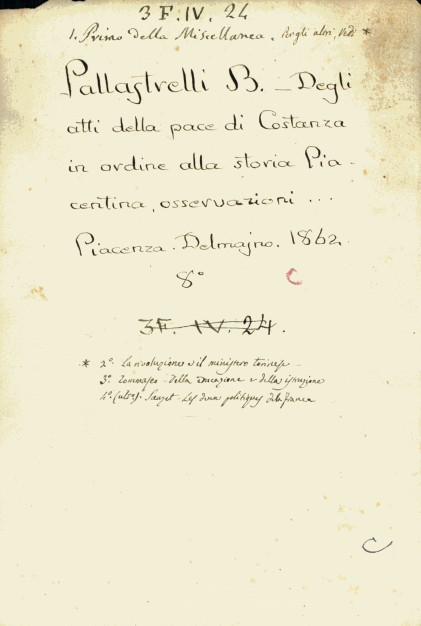 3 F. IV. 24
1. Primo della Miscellanea. Pegli altri, Vedi *
Pallastrelli B. — Degli
atti della pace di Costanza
in ordine alla storia Pia-
centina, osservazioni ...
Piacenza. Delmajno. 1862.
8° C
3F. IV. 24.
* 2°. La rivoluzione e il ministero torinese —
3°. Tommaseo - della educazione e della istruzione
4°. (ulto). Sauzet - Les deux politiques de la France
C